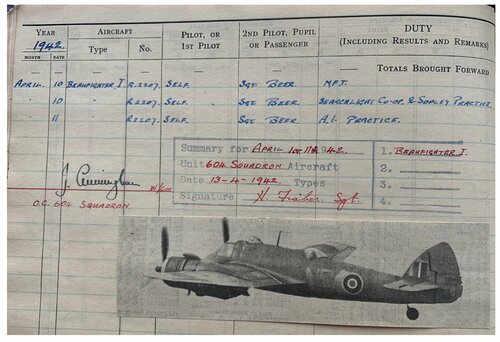 YEAR AIRCRAFT PILOT, OR 2ND PILOT, PUPIL DUTY
1942. Type No. 1ST PILOT OR PASSENGER (INCLUDING RESULTS AND REMARKS)
MONTH DATE
— — — — — — — TOTALS BROUGHT FORWARD
APRIL. 10 BEAUFIGHTER I. R2207. SELF. SGT BEER. N.F.T.
10 " " R2207. SELF. SGT BEER. SEARCHLIGHT CO-OP. & SOPLEY PRACTICE.
11 R2207. SELF. SGT BEER. A.I. PRACTICE.
Summary for APRIL 1st 1942. 1. BEAUFIGHTER I.
Unit 604 SQUADRON Aircraft 2.
Date 13-4-1942. Types 3.
Signature Sgt. 4.
J. Cunningham W/Cdr
O.C. 604 SQUADRON.